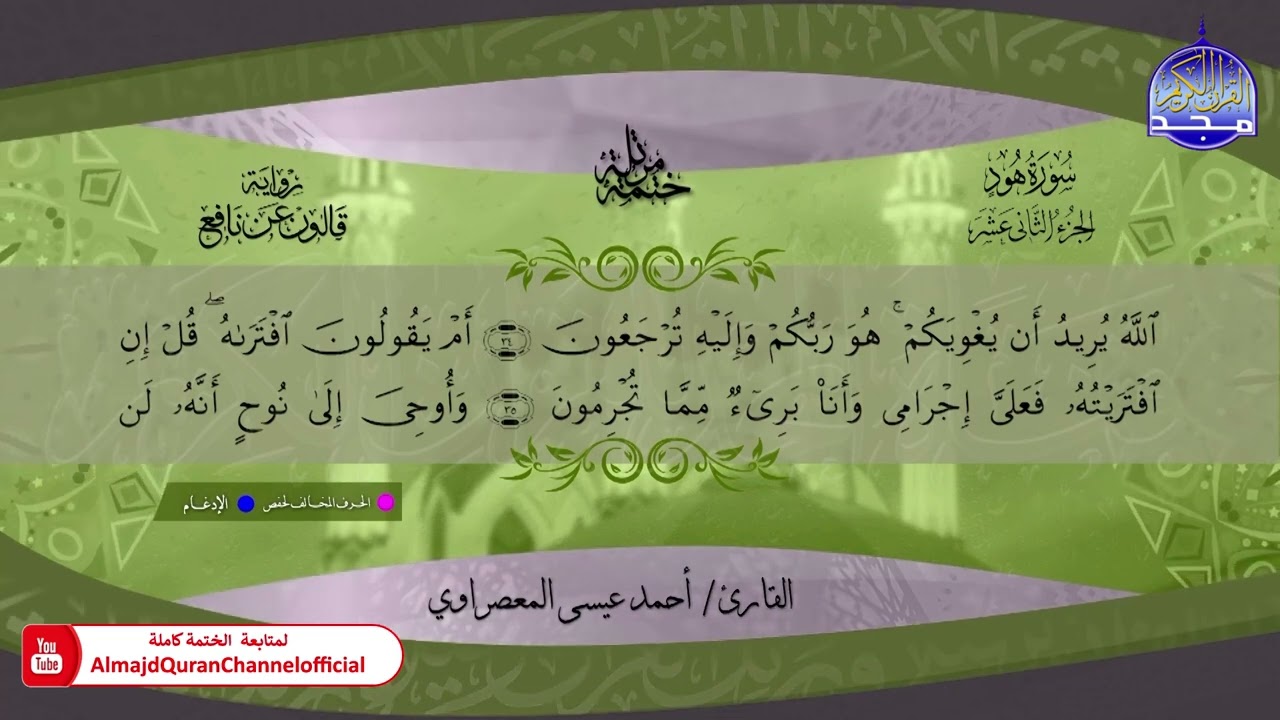 القرآن الكريم
مجد
سُورَةُ هُودٍ
الجزء الثاني عشر
ختمة مرتلة
رواية
قالون عن نافع
اَ۬للَّهُ يُرِيدُ أَن يُغْوِيَكُمْۚ هُوَ رَبُّكُمْ وَإِلَيْهِ تُرْجَعُونَ ٣٤ أَمْ يَقُولُونَ اَ۪فْتَرَىٰهُۖ قُلْ إِنِ
اِ۪فْتَرَيْتُهُۥ فَعَلَيَّ إِجْرَامِي وَأَنَا۠ بَرِيٓءٌ مِّمَّا تُجْرِمُونَ ٣٥ وَأُوحِيَ إِلَىٰ نُوحٍ أَنَّهُۥ لَن
الحرف المخالف لحفص الإدغام
القارئ/ أحمد عيسى المعصراوي
You
Tube
لمتابعة الختمة كاملة
AlmajdQuranChannelofficial